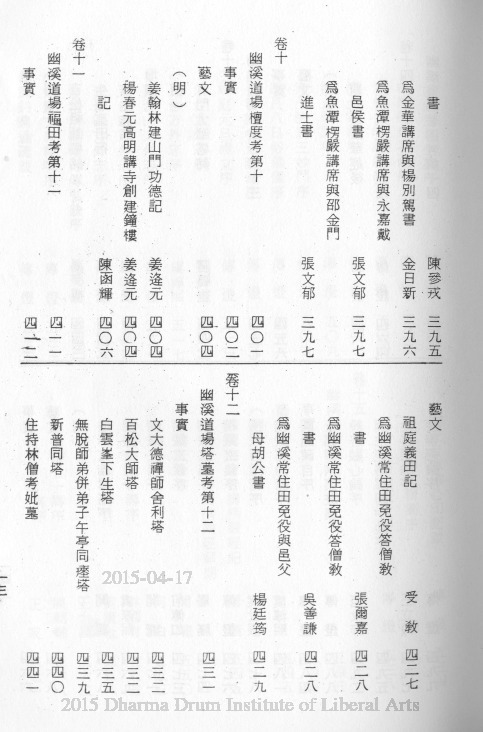 書 陳參戎 三九五
為金華講席與楊別駕書 金日新 三九六
為魚潭楞嚴講席與永嘉戴
邑侯書 張文郁 三九七
為魚潭楞嚴講席與邵金門
進士書 張文郁 三九七
卷十
幽溪道場檀度考第十 四〇一
事實 四〇二
藝文 四〇四
（明）
姜翰林建山門功德記 姜逢元 四〇四
楊春元高明講寺創建鐘樓 姜逢元 四〇四
記 陳函輝 四〇六
卷十一
幽溪道場福田考第十一 四一一
事實 四一二
藝文
祖庭義田記 受教 四二七
為幽溪常住田免役答僧教
書 張爾嘉 四二八
為幽溪常住田免役答僧教
書 吳善謙 四二八
為幽溪常住田免役與邑父
母胡公書 楊廷筠 四二九
卷十二
幽溪道場塔墓考第十二 四三一
事實
文大德禪師舍利塔 四三二
百松大師塔 四三二
白雲峯下生塔 四三五
無脫師弟併弟子午亭同瘞塔 四三九
新普同塔 四四〇
住持林僧考妣墓 四四一
一三
2015-04-17
2015 Dharma Drum Institute of Liberal Arts